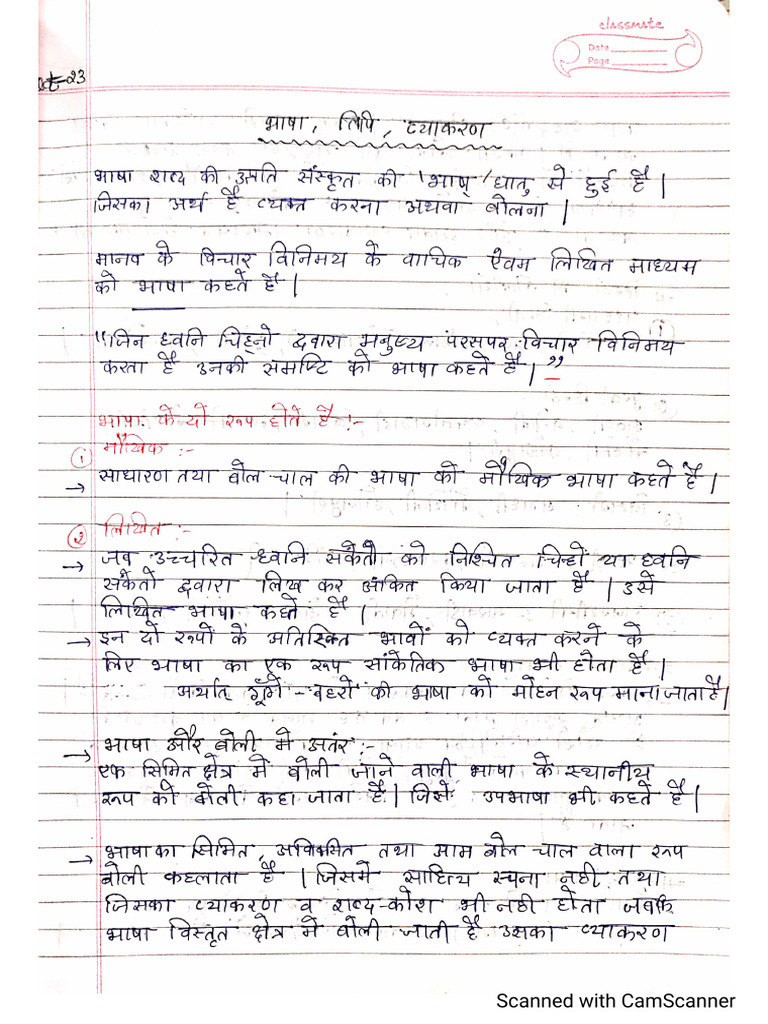 classmate
Date
Page
भाषा, लिपि, व्याकरण
भाषा शब्द की उत्पति संस्कृत की 'भाष्' धातु से हुई है |
जिसका अर्थ है व्यक्त करना अथवा बोलना |
मानव के विचार विनिमय के वाचिक ऐवम लिखित माध्यम
को भाषा कहते है |
"जिन ध्वनि चिह्नो द्वारा मनुष्य परसपर विचार विनिमय
करता है उनकी समष्टि को भाषा कहते है | "
भाषा के दो रूप होते है :-
① मौखिक :-
→ साधारण तथा बोल चाल की भाषा को मौखिक भाषा कहते है |
② लिखित :-
→ जब उच्चारित ध्वनि संकेतो को निश्चित चिन्हों या ध्वनि
संकेतों द्वारा लिख कर अंकित किया जाता है | उसे
लिखित भाषा कहते है |
→ इन दो रूपों के अतिरिक्त भावों को व्यक्त करने के
लिए भाषा का एक रूप सांकेतिक भाषा भी होता है |
अर्थात् गूँगे - बहरो की भाषा को मोहन रूप माना जाता है |
→ भाषा और बोली मे अतंर :-
एक सिमित क्षेत्र मे बोली जाने वाली भाषा के स्थानीय
रूप को बोली कहा जाता है | जिसे उपभाषा भी कहते है |
→ भाषा का सिमित, तथा आम बोल चाल वाला रूप
बोली कहलाता है | जिसमे साहित्य रचना नही तथा
जिसका व्याकरण व शब्द-कोश भी नही होता जबकि
भाषा विस्तृत क्षेत्र मे बोली जाती है उसका व्याकरण
Scanned with CamScanner